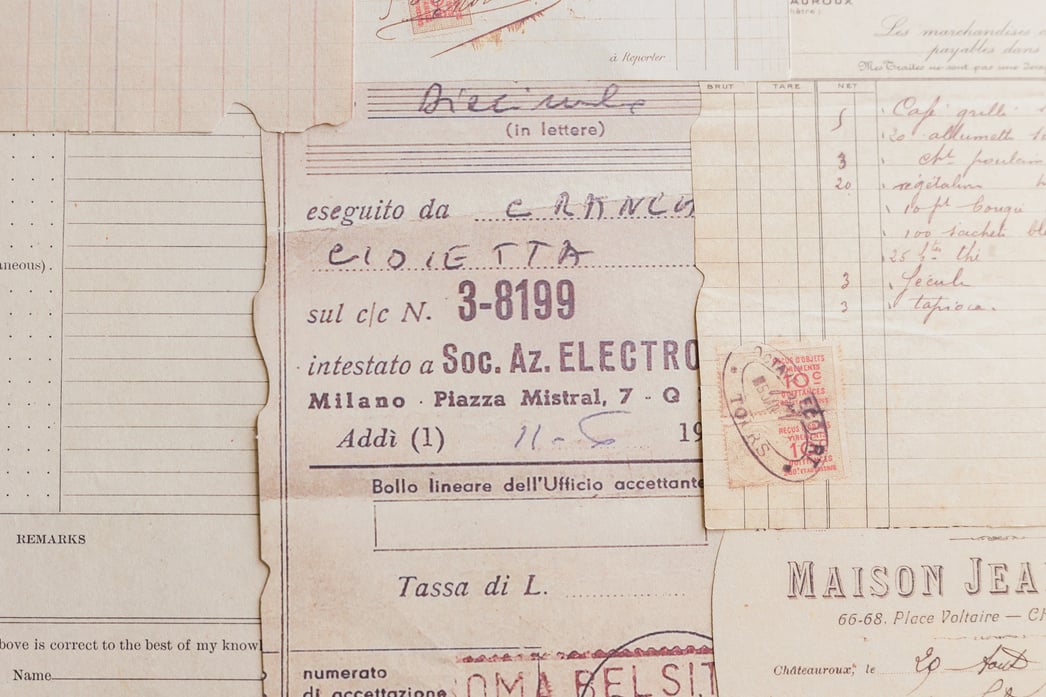 à Reporter
AUROUX
Les marchandises
payables dans
Mes Traites ne sont pas une
BRUT TARE NET
5 Café grillé
20 allumett
3 cht poulain
20 végétalin
10 pt bougi
100 sachet
25 thé
3 fécule
3 tapioca.
RECUS D'OBJETS
10c
TOURS
aneous).
REMARKS
bove is correct to the best of my know
Name
Diecimila
(in lettere)
eseguito da CRANCA
GIOIETTA
sul c/c N. 3-8199
intestato a Soc. Az. ELECTRO
Milano - Piazza Mistral, 7 - Q
Addì (1) 11-5 19
Bollo lineare dell'Ufficio accettante
Tassa di L.
numerato
di accettazione
OMA BELSIT
MAISON JEA
66-68, Place Voltaire — CH
Châteauroux, le 20 Août